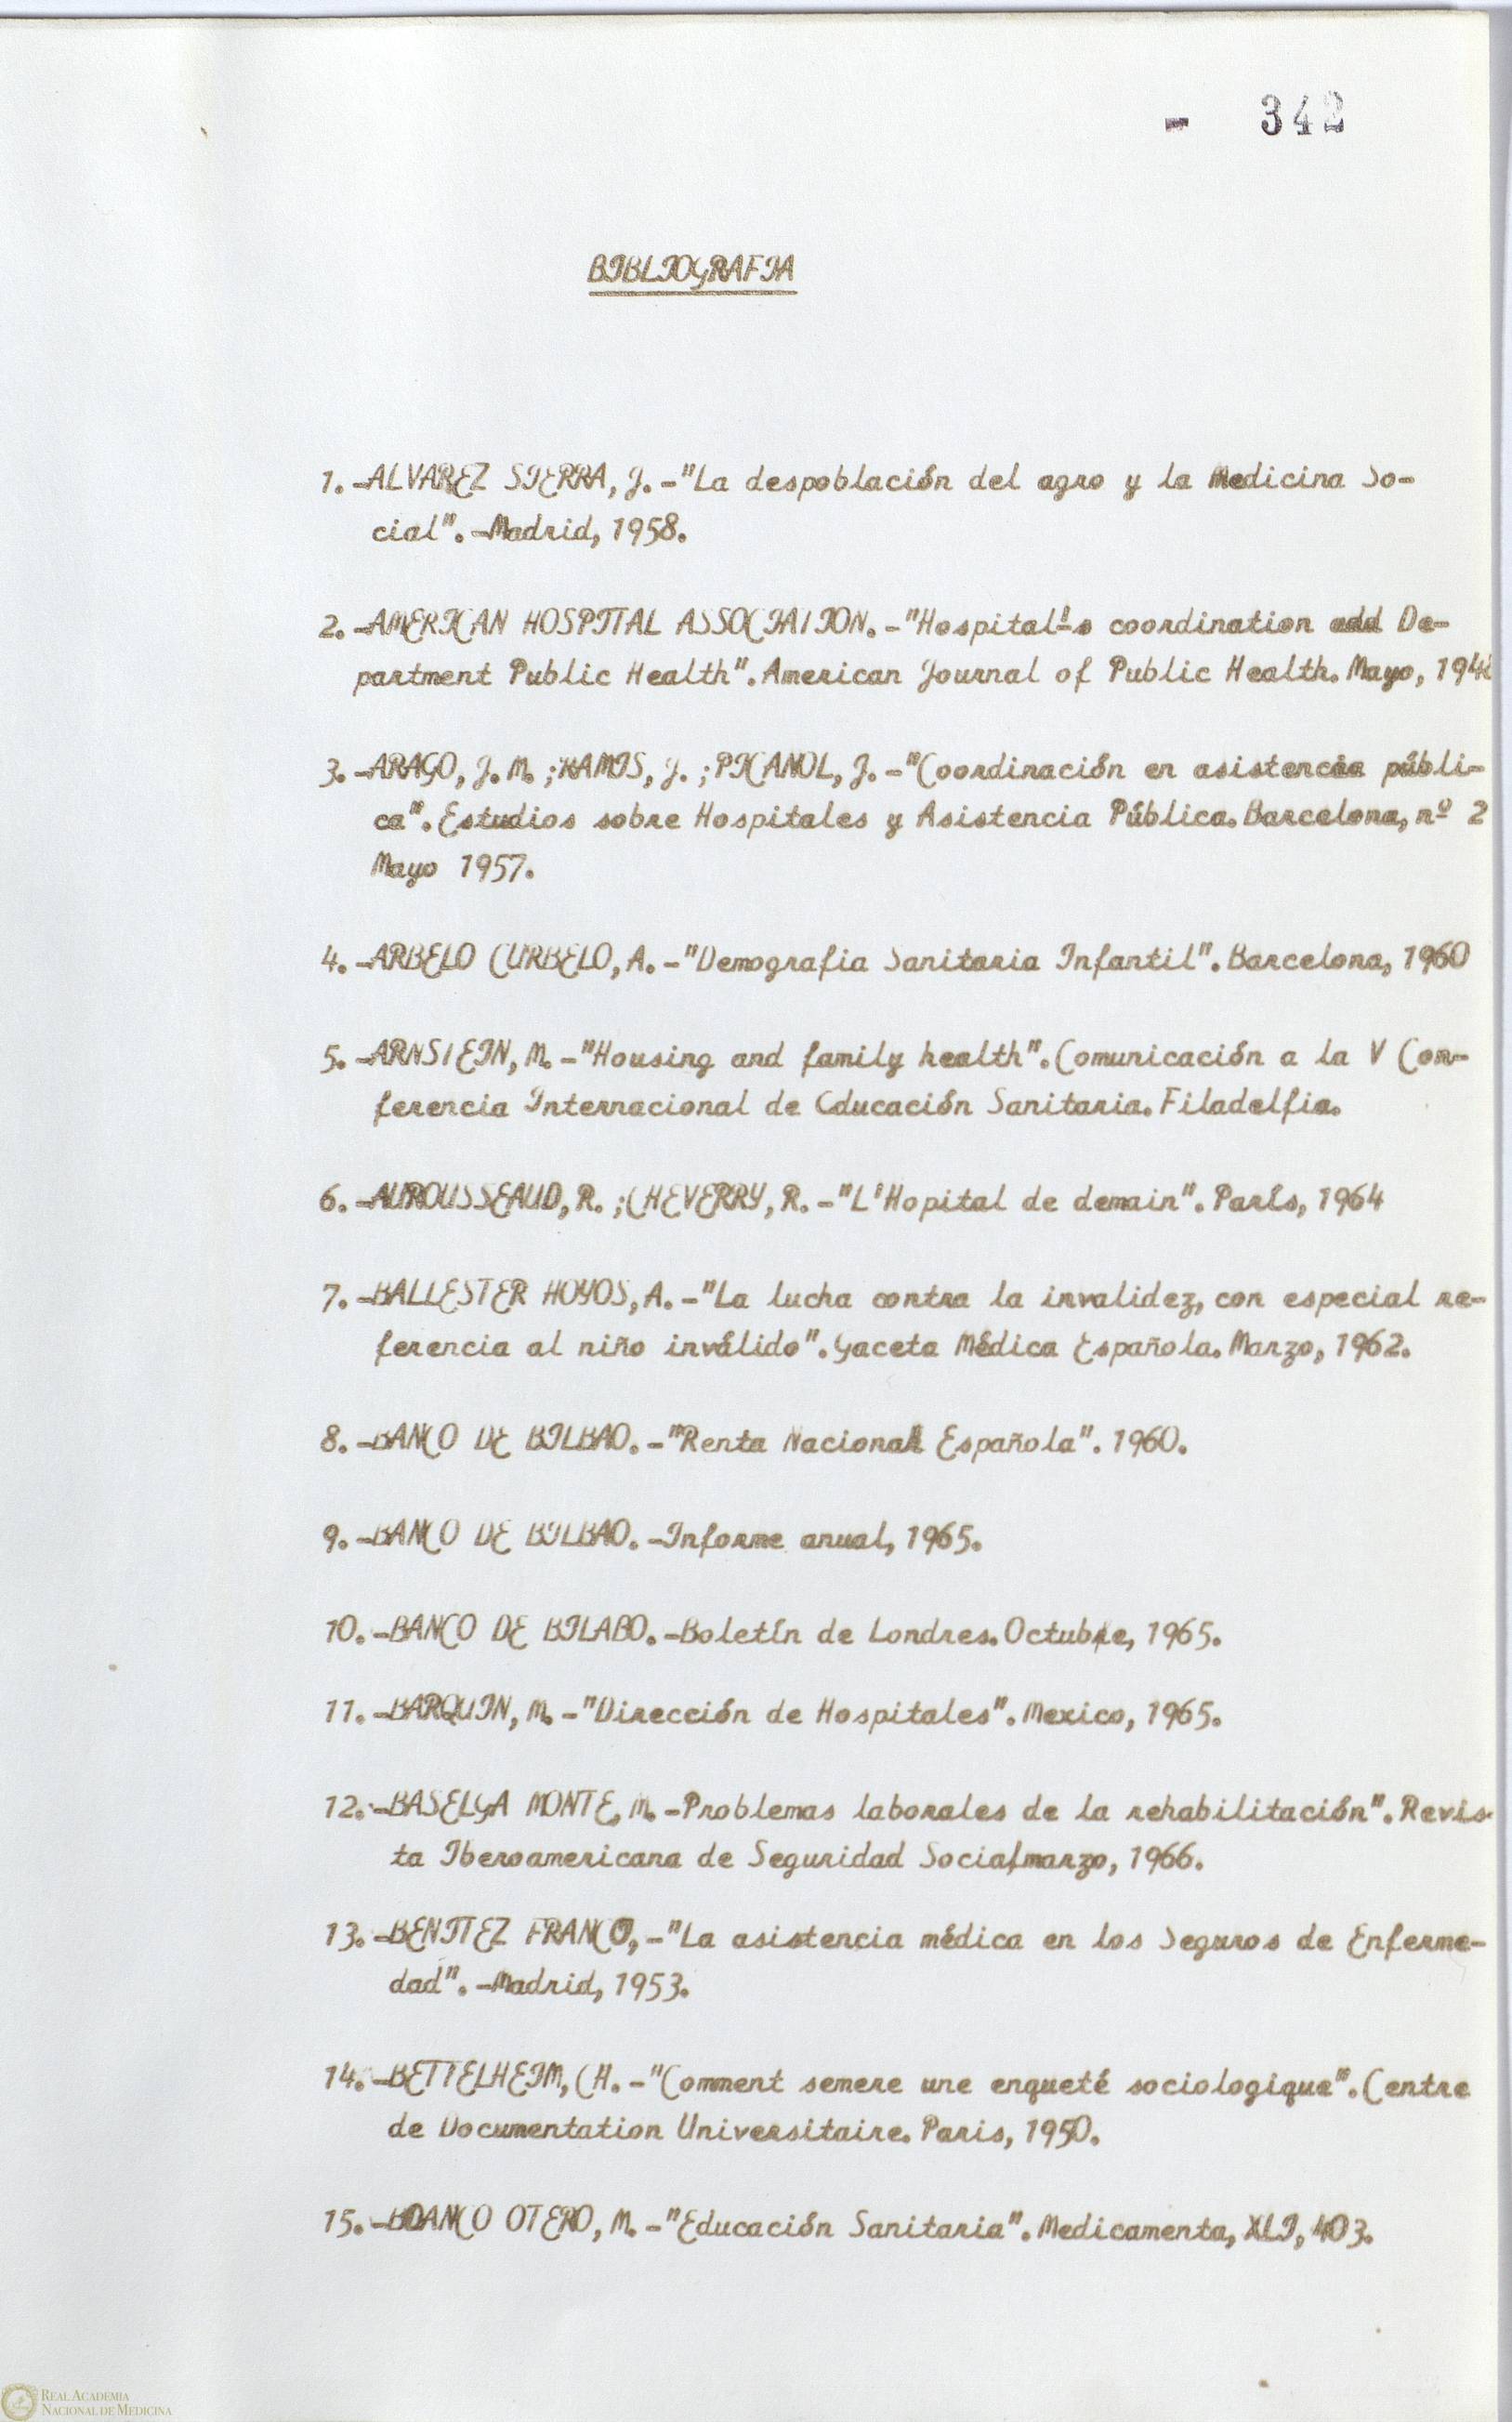 - 342
BIBLIOGRAFIA
1.-ALVAREZ SIERRA, J.-"La despoblación del agro y la Medicina So-
cial".-Madrid, 1958.
2.-AMERICAN HOSPITAL ASSOCIATION.-"Hospital's coordination add De-
partment Public Health".American Journal of Public Health.Mayo,
3.-ARAGO, J.M.;RAMIS, J.;PICANOL, J.-"Coordinación en asistencia públi-
ca".Estudios sobre Hospitales y Asistencia Pública.Barcelona, nº 2
Mayo 1957.
4.-ARBELO CURBELO, A.-"Demografia Sanitaria Infantil".Barcelona, 1960
5.-ARNSTEIN, M.-"Housing and family health".Comunicación a la V Con-
ferencia Internacional de Educación Sanitaria.Filadelfia.
6.-AUROUSSEAUD, R.;CHEVERRY, R.-"L'Hopital de demain".París, 1964
7.-BALLESTER HOYOS, A.-"La lucha contra la invalidez, con especial re-
ferencia al niño inválido".Gaceta Médica Española.Marzo, 1962.
8.-BANCO DE BILBAO.-"Renta Nacional Española".1960.
9.-BANCO DE BILBAO.-Informe anual, 1965.
10.-BANCO DE BILABO.-Boletín de Londres.Octubre, 1965.
11.-BARQUIN, M.-"Dirección de Hospitales".Mexico, 1965.
12.-BASELGA MONTE, M.-Problemas laborales de la rehabilitación".Revis-
ta Iberoamericana de Seguridad Social,marzo, 1966.
13.-BENITEZ FRANCO,-"La asistencia médica en los Seguros de Enferme-
dad".-Madrid, 1953.
14.-BETTELHEIM, CH.-"Comment semere une enqueté sociologique".Centre
de Documentation Universitaire.Paris, 1950.
15.-BLANCO OTERO, M.-"Educación Sanitaria".Medicamenta, XLI, 403.
REAL ACADEMIA
NACIONAL DE MEDICINA